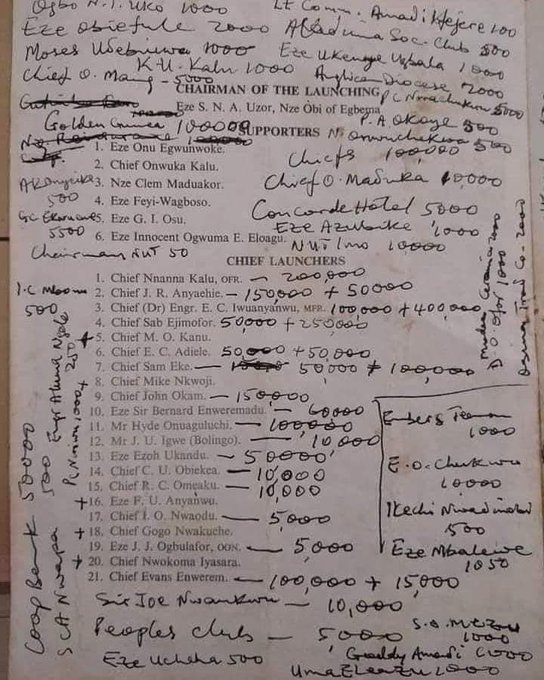 Ogbo N.I. Uko 1000
Lt Comm. Amadi Ikejere 100
Eze Obiefule 2000
Afaduma Soc. Club 500
Moses Udebiuwa 1000
Eze Ukenye Ugbala 1000
K.U. Kalu 1000
Anglican Diocese 2000
Chief O. Mang - 5000
PC Nwachukwu 5000
CHAIRMAN OF THE LAUNCHING
Eze S. N. A. Uzor, Nze Òbi of Egbema
P.A Okoye 500
Golden Guinea 100000
SUPPORTERS
N. Onwuchekwa 500
1. Eze Onu Egwunwoke.
Chiefs 100,000
2. Chief Onwuka Kalu.
3. Nze Clem Maduakor.
Chief O. Maduka 10000
500
4. Eze Feyi-Wagboso.
Concorde Hotel 5000
5500
5. Eze G. I. Osu.
Eze Azubuike 1000
6. Eze Innocent Ogwuma E. Eloagu.
NUT Imo 10000
Chairman NUT 50
CHIEF LAUNCHERS
1. Chief Nnanna Kalu, OFR. - 200,000
2. Chief J. R. Anyaehie. - 150,000 + 50000
3. Chief (Dr) Engr. E. C. Iwuanyanwu, MFR. 100,000 + 400,000
4. Chief Sab Ejimofor. 50000 + 250000
+ 5. Chief M. O. Kanu.
6. Chief E. C. Adiele. 50000 + 50,000
7. Chief Sam Eke. 50000 + 100,000
8. Chief Mike Nkwoji.
9. Chief John Okam. - 150000
10. Eze Sir Bernard Enweremadu. - 60000
11. Mr Hyde Onuaguluchi. - 100,000
12. Mr J. U. Igwe (Bolingo). - 10,000
13. Eze Ezoh Ukandu. - 50000
14. Chief C. U. Obiekea. - 10,000
15. Chief R. C. Omeaku. - 10,000
+ 16. Eze F. U. Anyanwu.
17. Chief I. O. Nwaodu. - 5,000
+ 18. Chief Gogo Nwakuche.
19. Eze J. J. Ogbulafor, OGN. - 5,000
+ 20. Chief Nwokoma Iyasara.
21. Chief Evans Enwerem. - 100,000 + 15,000
Sir Joe Nwankwu - 10,000
Peoples Club - 5,000
Eze Ucheha 500
1000
Goddy Amadi 1000
Uma Eleazu 1000
1000
E.O. Chukwu
10000
Ikechi Nwadinobi
500
Eze Mbalewe
1050
500
Coop Bank 50000
SCA Nwapa 500